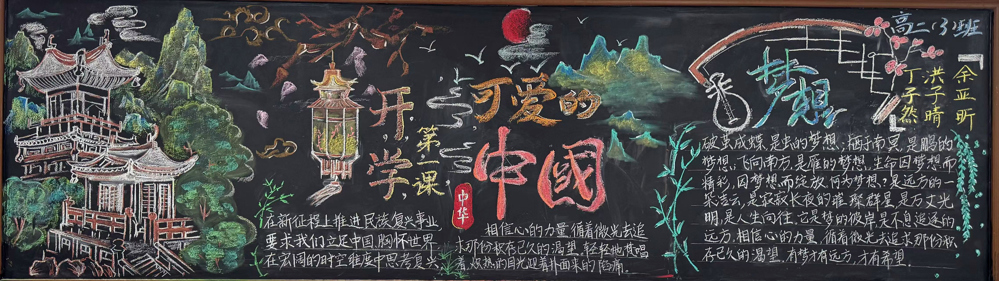 开学
第一课
可爱的
中國
中华
在新征程上推进民族复兴事业
要求我们立足中国,胸怀世界
在宏阔的时空维度中思考复兴
相信心的力量,循着微光去追
求那份秋存已久的渴望,轻轻地梵唱
着,炽热的目光迎着扑面来的陷痛。
梦想
高二(3)班
余亚昕
洪子晴
丁子然
破茧成蝶,是虫的梦想,栖于南冥,是鹏的
梦想,飞向南方,是雁的梦想,生命因梦想而
精彩,因梦想而绽放,何为梦想?是远方的一
朵青云,是寂寂长夜的璀璨群星,是万丈光
明,是人生向往,它是梦的彼岸,是不息追逐的
远方,相信心的力量,循着微光去追求那份秋
存已久的渴望,有梦才有远方,才有希望。